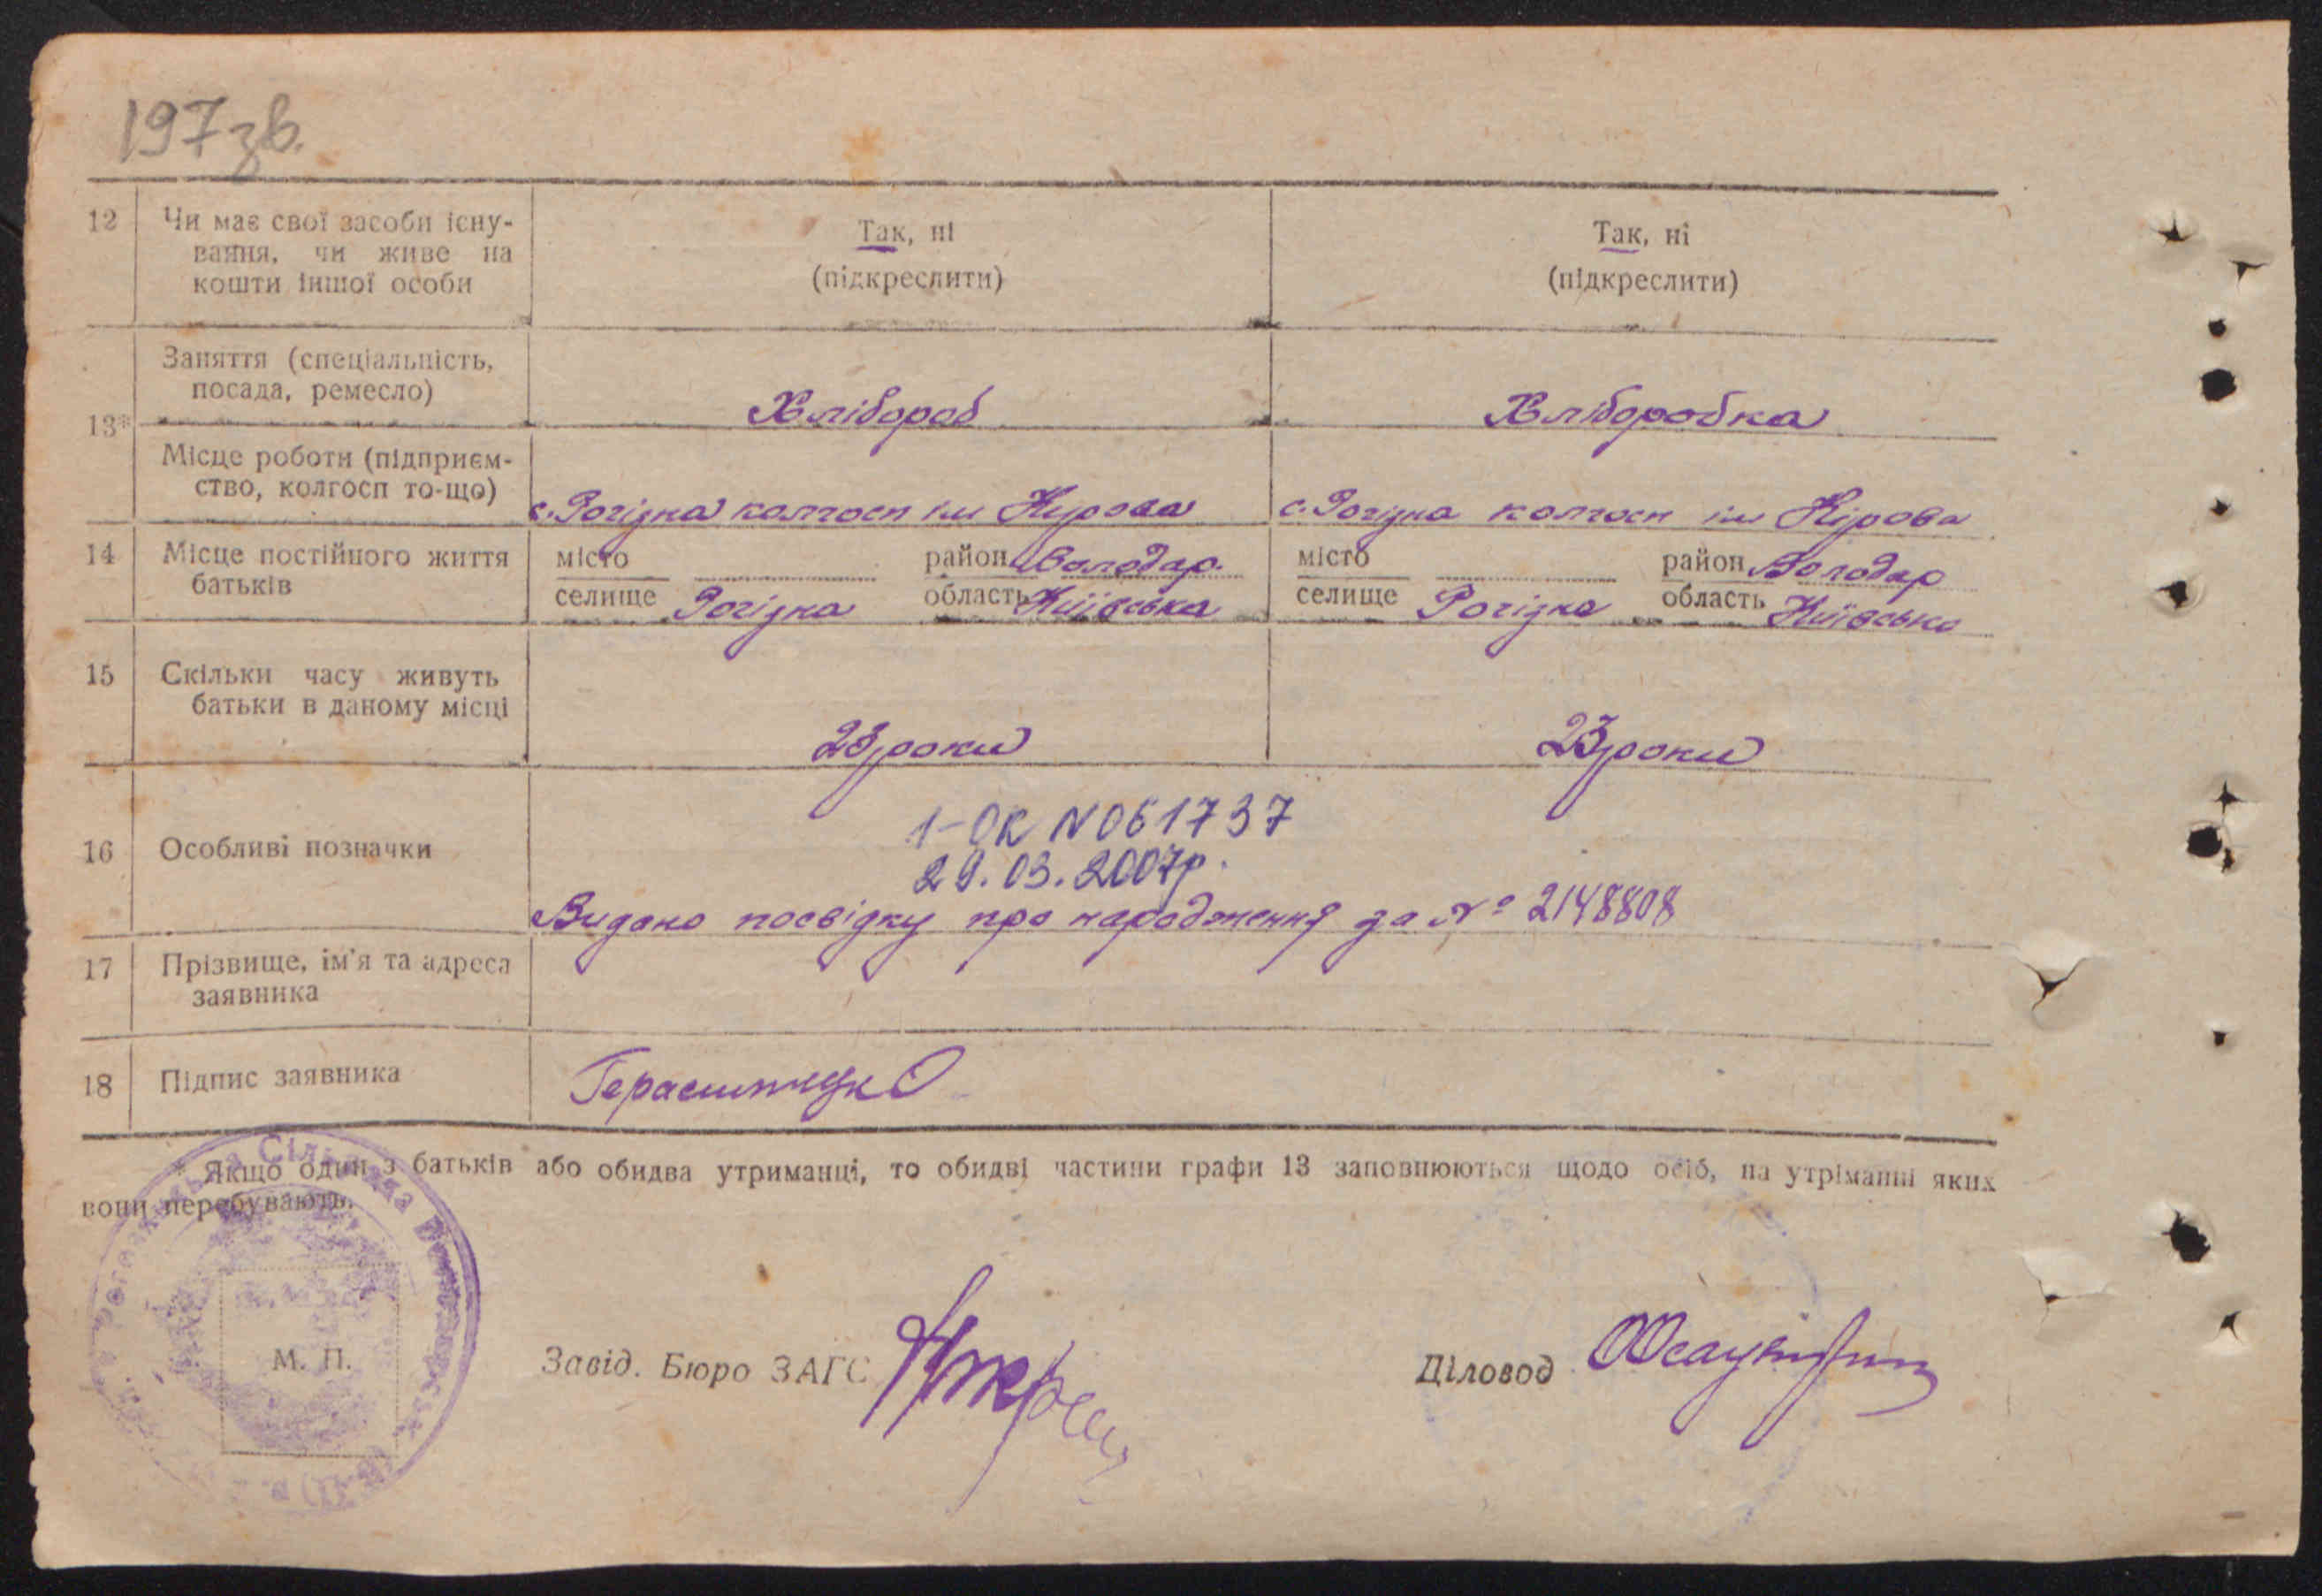 197 зв.
12 Чи має свої засоби існу-
вання, чи живе на
кошти іншої особи
Так, ні
(підкреслити)
Так, ні
(підкреслити)
13*
Заняття (спеціальність,
посада, ремесло)
Хлібороб
Хліборобка
Місце роботи (підприєм-
ство, колгосп то-що)
с. Рогізна колгосп ім Кірова
с. Рогізна колгосп ім Кірова
14 Місце постійного життя
батьків
місто район Володар.
селище Рогізна область Київська
місто район Володар
селище Рогізна область Київська
15 Скільки часу живуть
батьки в даному місці
23 роки
23 роки
16 Особливі позначки
1-ОК N 061737
29.03.2007р.
Видано посвідку про народження за № 2148808
17 Прізвище, ім'я та адреса
заявника
18 Підпис заявника
* Якщо один з батьків або обидва утриманці, то обидві частини графи 13 заповнюються щодо осіб, на утріманні яких
вони перебувають.
Сільрада
М. П.
Завід. Бюро ЗАГС
Діловод